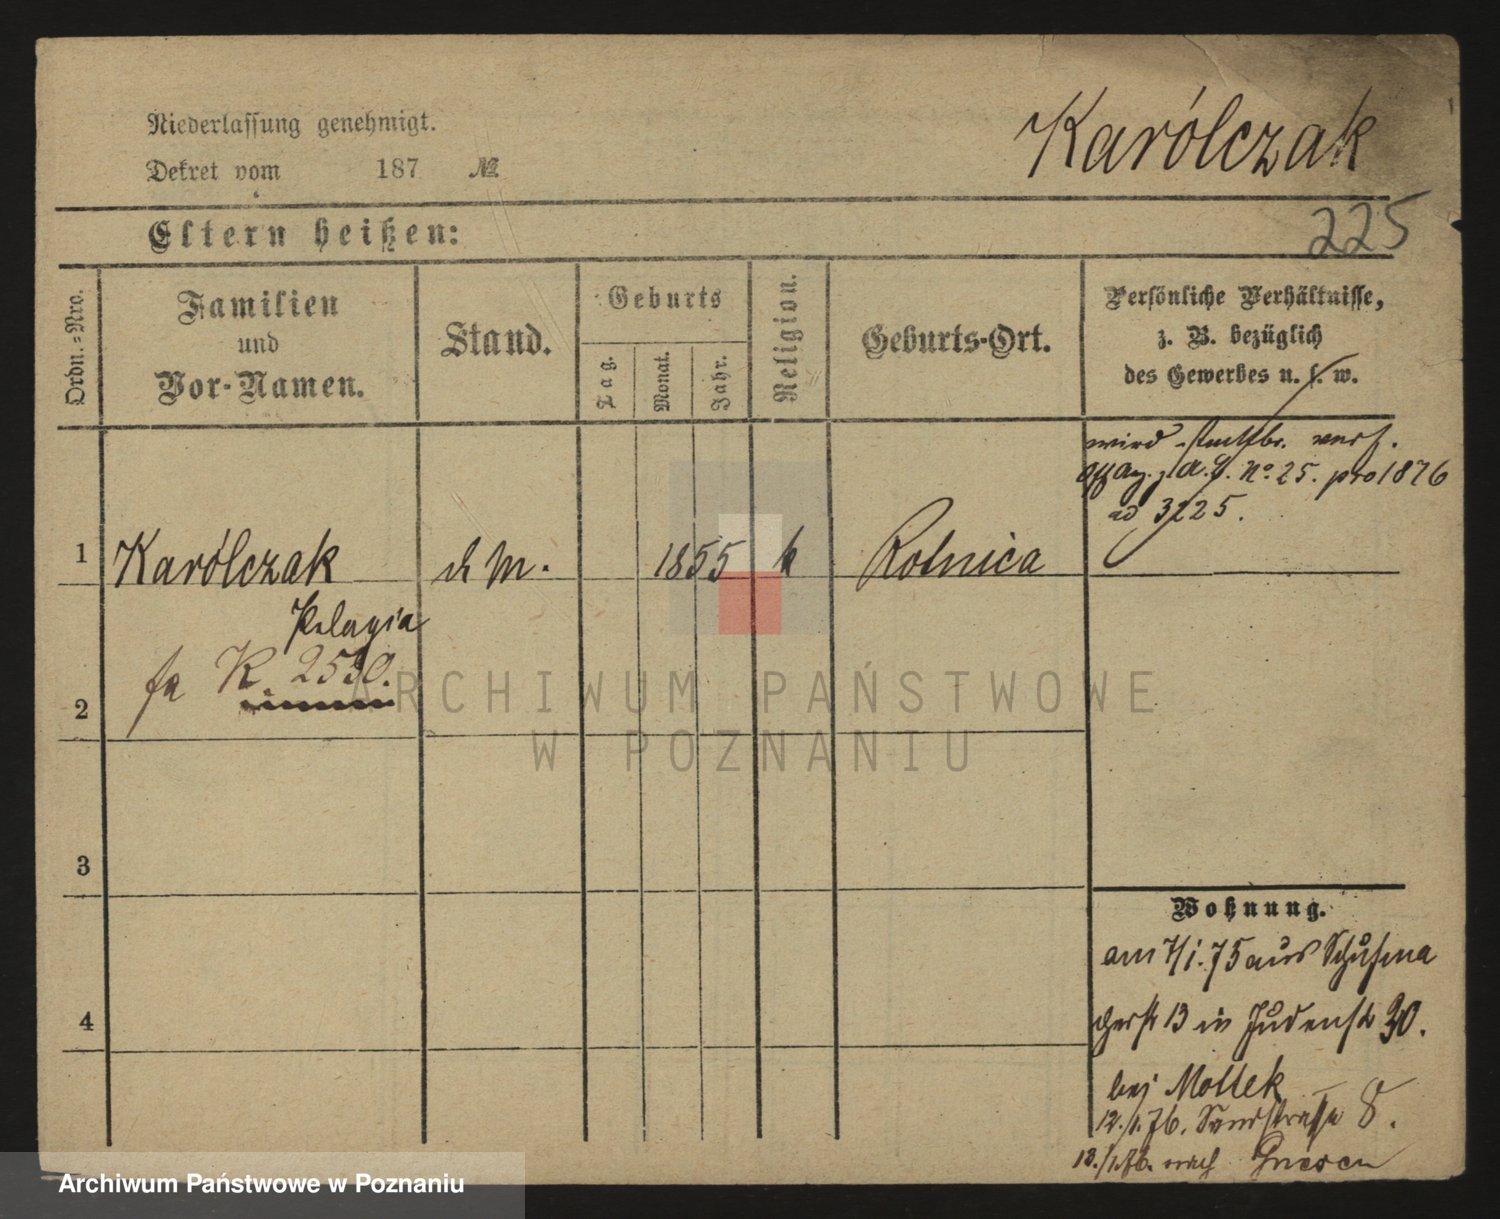 Niederlassung genehmigt.
Dekret vom 187 №
Karólczak
Eltern heißen:
225
Ordn.-Nro.
Familien
und
Vor-Namen.
Stand.
Geburts
Tag.
Monat.
Jahr.
Religion.
Geburts-Ort.
Persönliche Verhältnisse,
z. B. bezüglich
des Gewerbes u. s. w.
wird
No 25. pro 1876
ad 3225.
1 Karólczak d M. 1855 k Rotnica
Pelagia
fa K. 2530.
2
ARCHIWUM PAŃSTWOWE
W POZNANIU
3
Wohnung.
am 7/1. 75 aus Schuhma
cherstr 13 in Judenstr 30.
4
bei Mottek
12./1. 76. Sandstraße 8.
13./1. 76. nach Gnesen
Archiwum Państwowe w Poznaniu